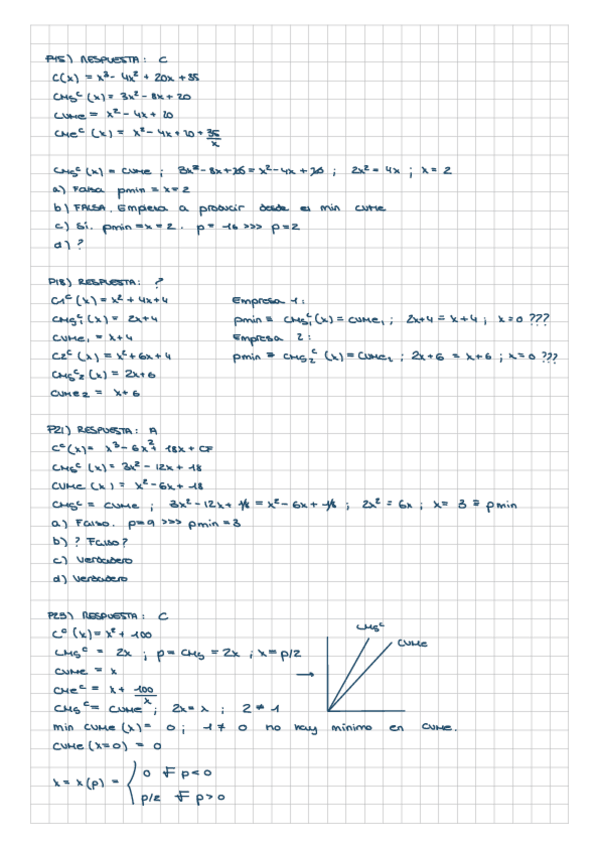 P15) RESPUESTA: C
C(x) = x³ - 4x² + 20x + 35
CMgᶜ(x) = 3x² - 8x + 20
CVMe = x² - 4x + 20
CMeᶜ(x) = x² - 4x + 20 + 35/x
CMgᶜ(x) = CVMe ; 3x² - 8x + 20 = x² - 4x + 20 ; 2x² = 4x ; x = 2
a) Falsa pmin = x = 2
b) FALSA. Empieza a producir desde el min CVMe
c) Sí. pmin = x = 2. p = 16 >>> p = 2
d) ?
P18) RESPUESTA: ?
C1ᶜ(x) = x² + 4x + 4 Empresa 1:
CMg₁ᶜ(x) = 2x + 4 pmin ≡ CMg₁ᶜ(x) = CVMe₁ ; 2x + 4 = x + 4 ; x = 0 ???
CVMe₁ = x + 4 Empresa 2:
C2ᶜ(x) = x² + 6x + 4 pmin ≡ CMg₂ᶜ(x) = CVMe₂ ; 2x + 6 = x + 6 ; x = 0 ???
CMgᶜ₂(x) = 2x + 6
CVMe2 = x + 6
P21) RESPUESTA: A
Cᶜ(x) = x³ - 6x² + 18x + CF
CMgᶜ(x) = 3x² - 12x + 18
CVMe(x) = x² - 6x + 18
CMgᶜ = CVMe ; 3x² - 12x + 18 = x² - 6x + 18 ; 2x² = 6x ; x = 3 ≡ pmin
a) Falso. p = 9 >>> pmin = 3
b) ? Falso?
c) Verdadero
d) Verdadero
P29) RESPUESTA: C
Cᶜ(x) = x² + 100 CMgᶜ
CMgᶜ = 2x ; p = CMg = 2x ; x = p/2 → CVMe
CVMe = x
CMeᶜ = x + 100/x
CMgᶜ = CVMe ; 2x = x ; 2 ≠ 1
min CVMe(x) = 0 ; 1 ≠ 0 no hay mínimo en CVMe.
CVMe(x=0) = 0
x = x(p) = { 0 si p < 0
p/2 si p > 0